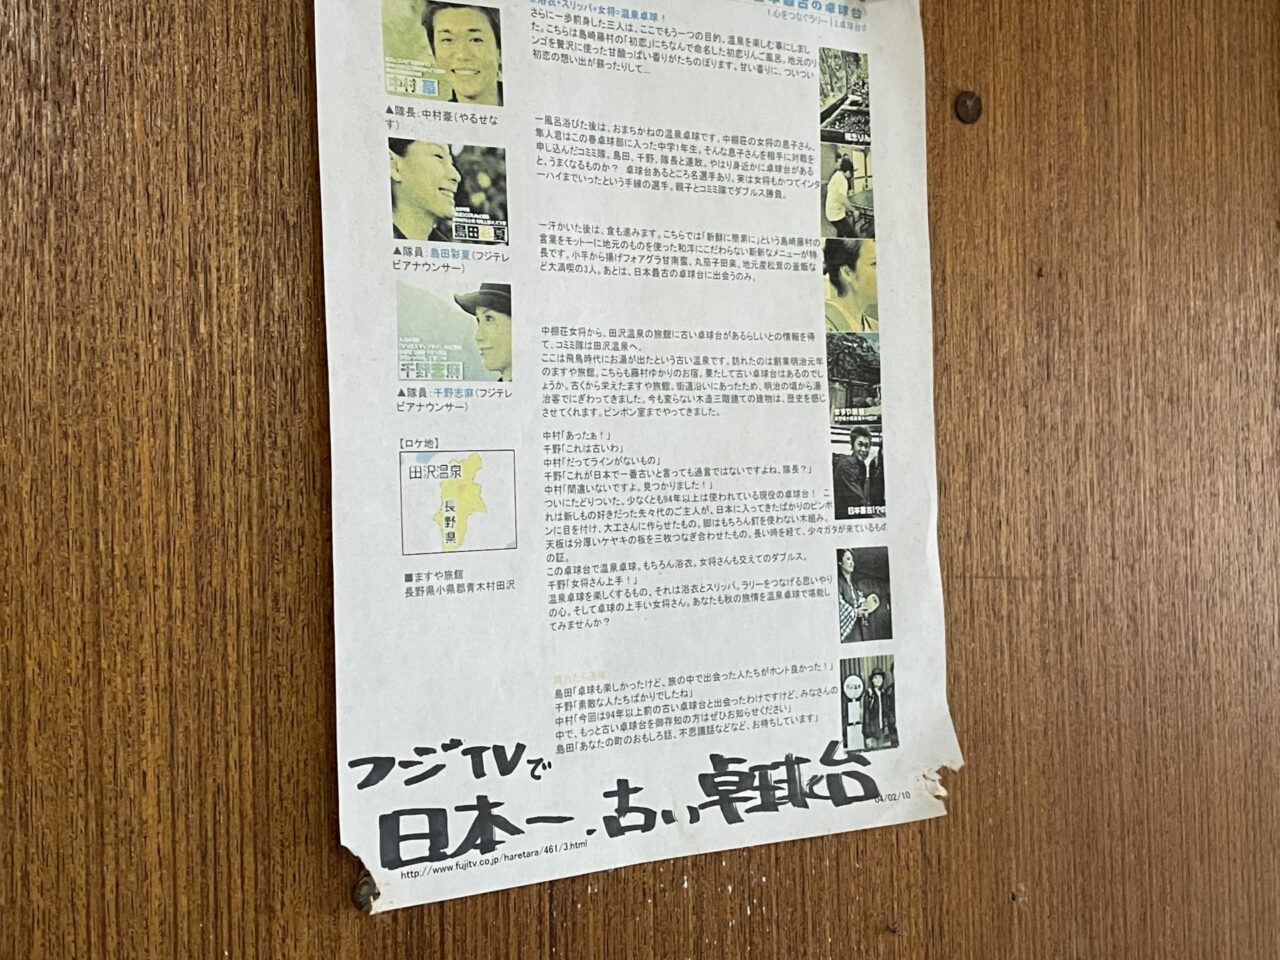 最古の卓球台
1.心をつなぐラリー|2.卓球台
浴衣+スリッパ+女将=温泉卓球！
さらに一歩前身した三人は、ここでもう一つの目的、温泉を楽しむ事にしまし
た。こちらは島崎藤村の「初恋」にちなんで命名した初恋りんご風呂。地元のリ
ンゴを贅沢に使った甘酸っぱい香りがたちのぼります。甘い香りに、ついつい
初恋の想い出が蘇ったりして…
中村 豪
▲隊長：中村豪(やるせな
す)
一風呂浴びた後は、おまちかねの温泉卓球です。中棚荘の女将の息子さん、
隼人君はこの春卓球部に入った中学1年生。そんな息子さんを相手に対戦を
申し込んだコミミ隊。島田、千野、隊長と連敗。やはり身近かに卓球台がある
と、うまくなるものか？ 卓球台あるところ名選手あり。実は女将もかつてインタ
ーハイまでいったという手練の選手。親子とコミミ隊でダブルス勝負。
島田彩夏
▲隊員：島田彩夏(フジテレ
ビアナウンサー)
一汗かいた後は、食も進みます。こちらでは「新鮮に簡素に」という島崎藤村の
言葉をモットーに地元のものを使った和洋にこだわらない斬新なメニューが特
長です。小芋から揚げフォアグラ甘南蛮、丸茄子田楽、地元産松茸の釜飯な
ど大満喫の3人。あとは、日本最古の卓球台に出会うのみ。
千野志麻
▲隊員：千野志麻(フジテレ
ビアナウンサー)
中棚荘女将から、田沢温泉の旅館に古い卓球台があるらしいとの情報を得
て、コミミ隊は田沢温泉へ。
ここは飛鳥時代にお湯が出たという古い温泉です。訪れたのは創業明治元年
のますや旅館。こちらも藤村ゆかりのお宿。果たして古い卓球台はあるのでし
ょうか。古くから栄えたますや旅館。街道沿いにあったため、明治の頃から湯
治客でにぎわってきました。今も変らない木造三階建ての建物は、歴史を感じ
させてくれます。ピンポン室までやってきました。
【ロケ地】
田沢温泉
長野県
■ますや旅館
長野県小県郡青木村田沢
中村「あったぁ！」
千野「これは古いわ」
中村「だってラインがないもの」
千野「これが日本で一番古いと言っても過言ではないですよね、隊長？」
中村「間違いないですよ。見つかりました！」
ついにたどりついた、少なくとも94年以上は使われている現役の卓球台！ こ
れは新しもの好きだった先々代のご主人が、日本に入ってきたばかりのピンポ
ンに目を付け、大工さんに作らせたもの。脚はもちろん釘を使わない木組み。
天板は分厚いケヤキの板を三枚つなぎ合わせたもの。長い時を経て、少々ガタが来ているもの
の証。
この卓球台で温泉卓球。もちろん浴衣。女将さんも交えてのダブルス。
千野「女将さん上手！」
温泉卓球を楽しくするもの、それは浴衣とスリッパ。ラリーをつなげる思いやり
の心。そして卓球の上手い女将さん。あなたも秋の旅情を温泉卓球で堪能し
てみませんか？
島田「卓球も楽しかったけど、旅の中で出会った人たちがホント良かった！」
千野「素敵な人たちばかりでしたね」
中村「今回は94年以上前の古い卓球台と出会ったわけですけど、みなさんの
中で、もっと古い卓球台を御存知の方はぜひお知らせください」
島田「あなたの町のおもしろ話、不思議話などなど、お待ちしています」
フジTVで
日本一、古い卓球台
http://www.fujitv.co.jp/haretara/461/3.html
04/02/10